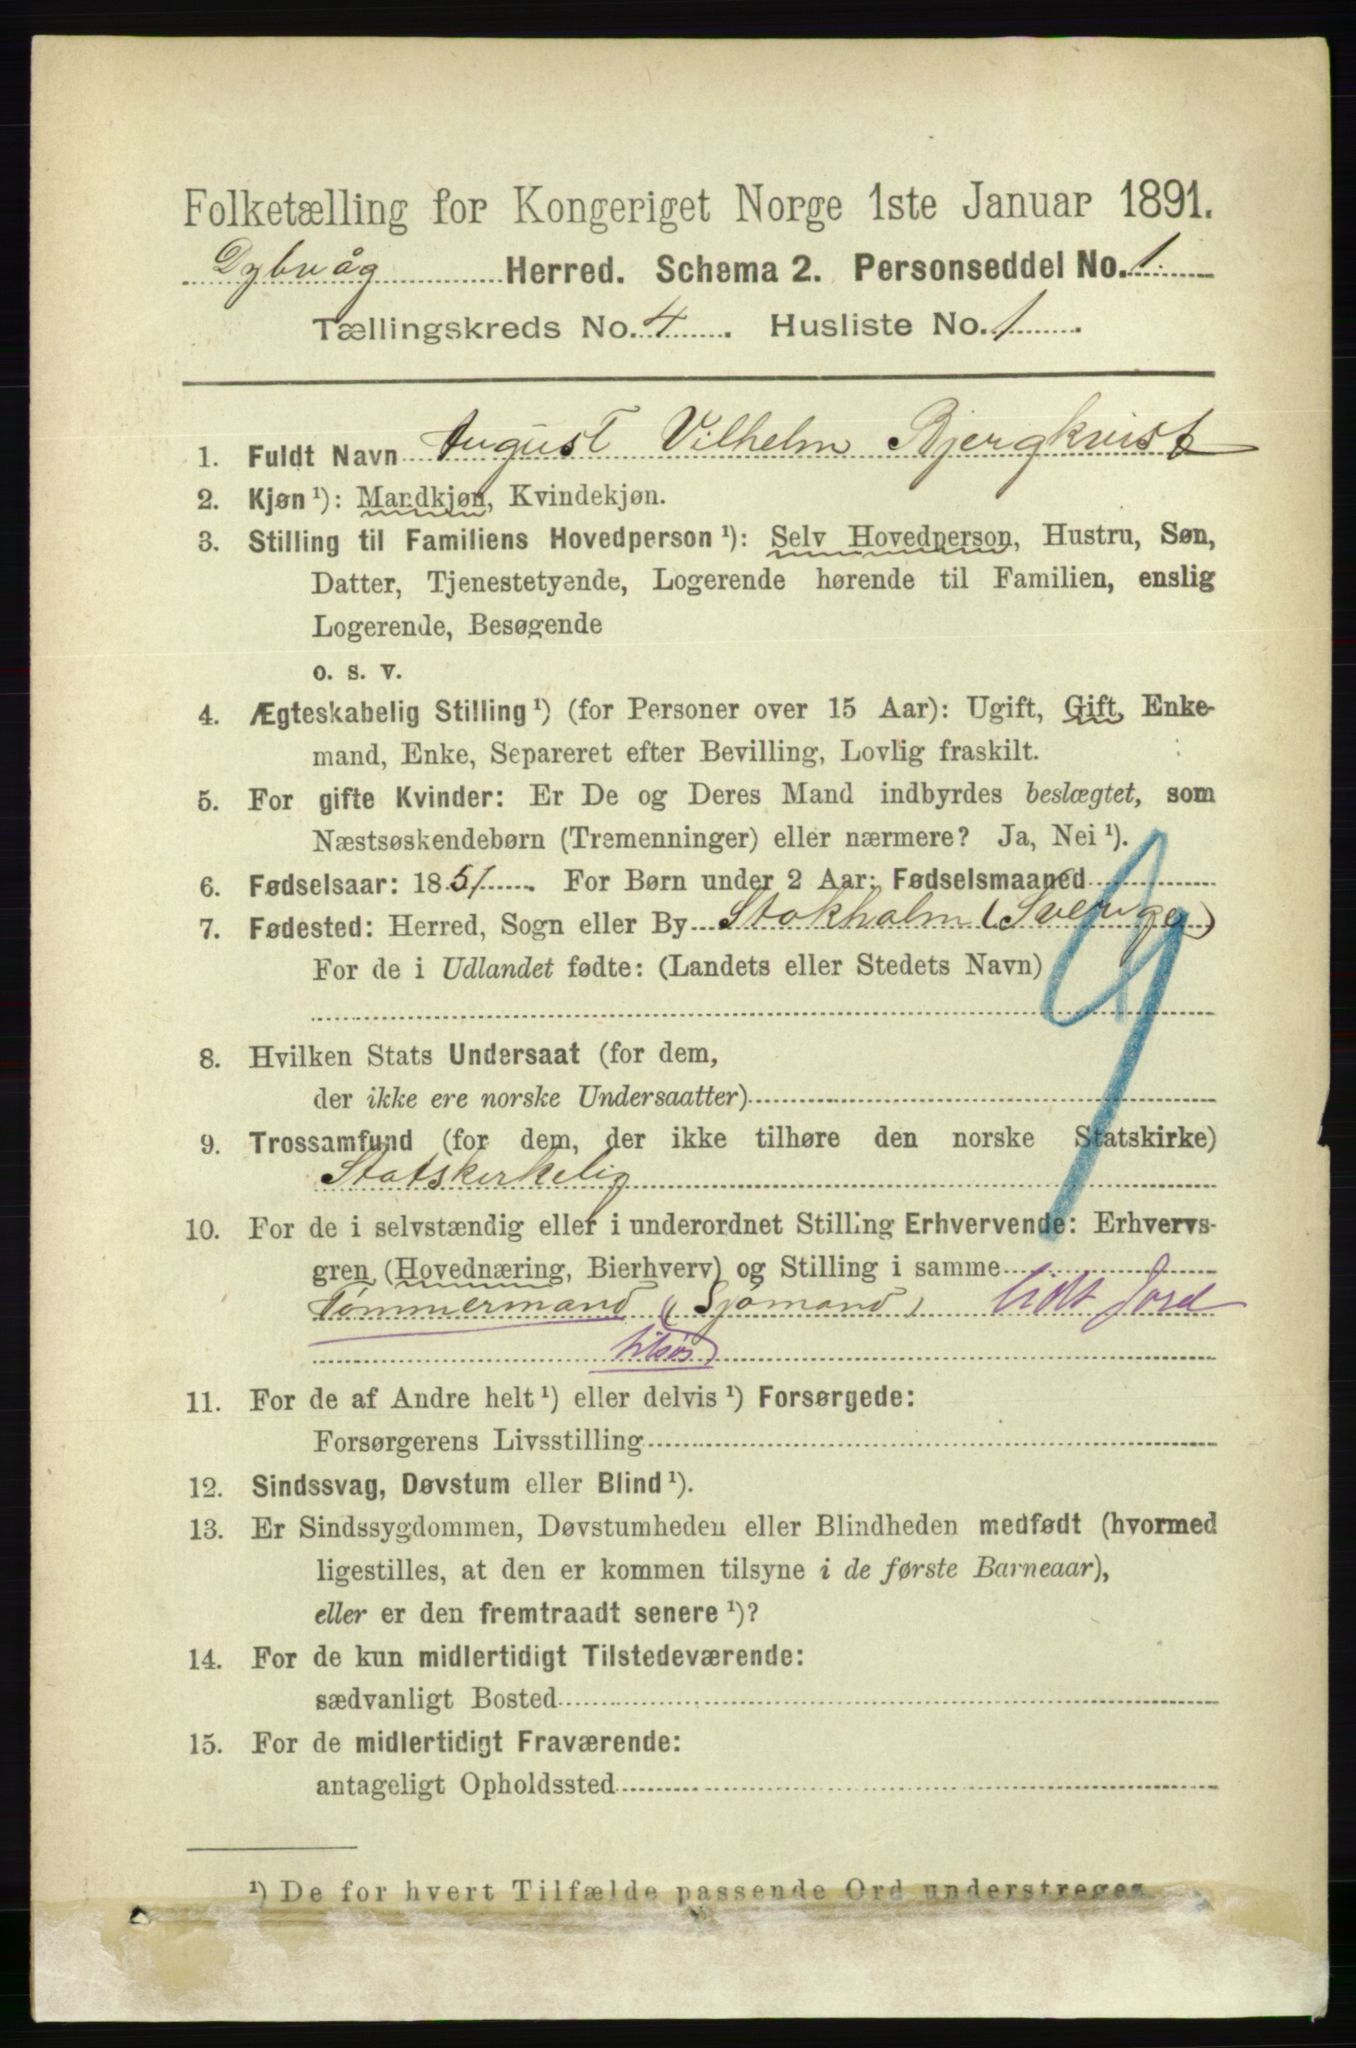 Folketælling for Kongeriget Norge 1ste Januar 1891.
Dybvåg Herred. Schema 2. Personseddel No. 1
Tællingskreds No. 4. Husliste No. 1.
1. Fuldt Navn August Vilhelm Bjergkvist
2. Kjøn ¹): Mandkjøn, Kvindekjøn.
3. Stilling til Familiens Hovedperson ¹): Selv Hovedperson, Hustru, Søn,
Datter, Tjenestetyende, Logerende hørende til Familien, enslig
Logerende, Besøgende
o. s. v.
4. Ægteskabelig Stilling ¹) (for Personer over 15 Aar): Ugift, Gift, Enke-
mand, Enke, Separeret efter Bevilling, Lovlig fraskilt.
5. For gifte Kvinder: Er De og Deres Mand indbyrdes beslægtet, som
Næstsøskendebørn (Tremenninger) eller nærmere? Ja, Nei ¹).
6. Fødselsaar: 1851. For Børn under 2 Aar: Fødselsmaaned
7. Fødested: Herred, Sogn eller By Stokholm (Sverige)
For de i Udlandet fødte: (Landets eller Stedets Navn)
9
8. Hvilken Stats Undersaat (for dem,
der ikke ere norske Undersaatter)
9. Trossamfund (for dem, der ikke tilhøre den norske Statskirke)
Statskirkelig
10. For de i selvstændig eller i underordnet Stilling Erhvervende: Erhvervs-
gren (Hovednæring, Bierhverv) og Stilling i samme
Tømmermand (Sjømand) lidt Jord
tilsøs)
11. For de af Andre helt ¹) eller delvis ¹) Forsørgede:
Forsørgerens Livsstilling
12. Sindssvag, Døvstum eller Blind ¹).
13. Er Sindssygdommen, Døvstumheden eller Blindheden medfødt (hvormed
ligestilles, at den er kommen tilsyne i de første Barneaar),
eller er den fremtraadt senere ¹)?
14. For de kun midlertidigt Tilstedeværende:
sædvanligt Bosted
15. For de midlertidigt Fraværende:
antageligt Opholdssted
¹) De for hvert Tilfælde passende Ord understreges.